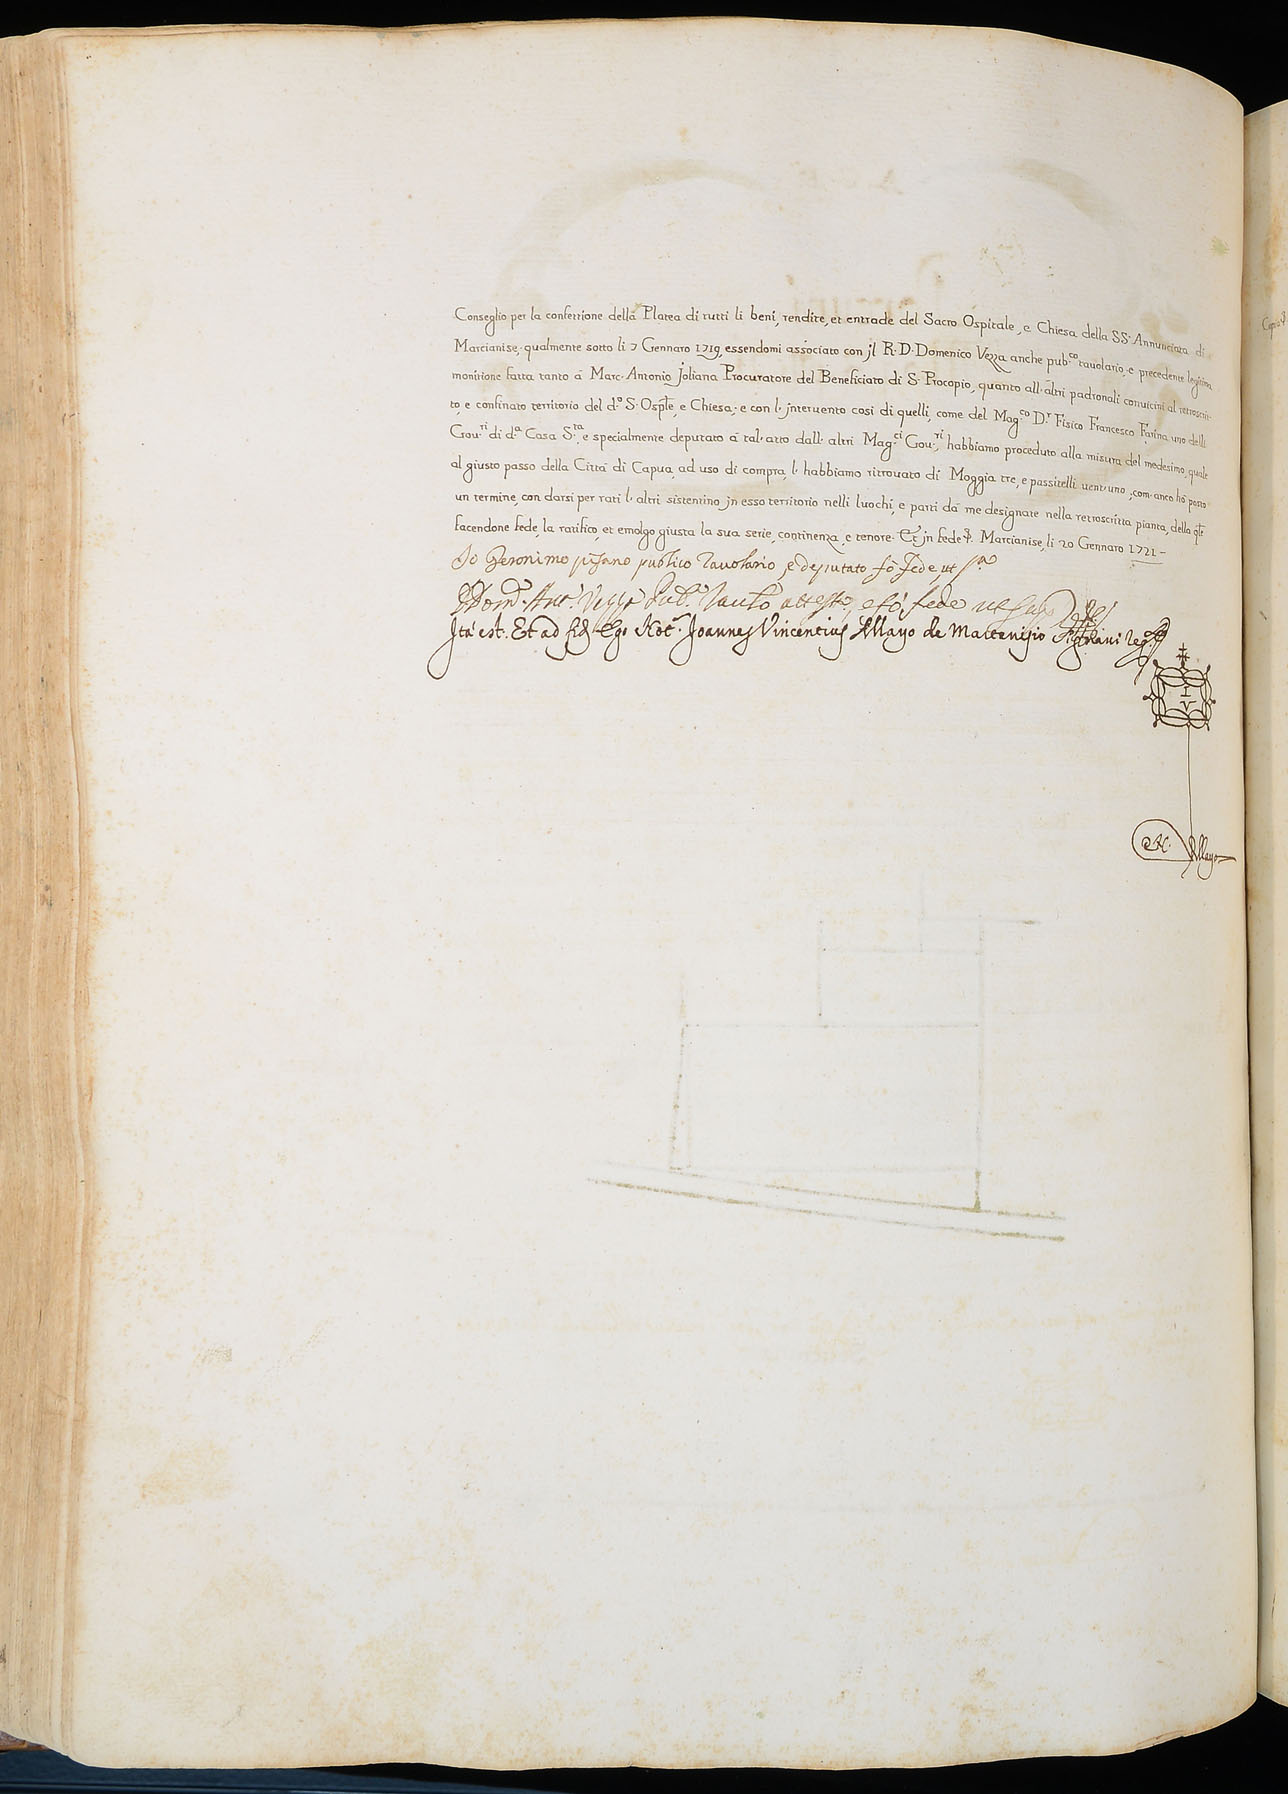 Conseglio per la confettione della Platea di tutti li beni, rendite, et entrade del Sacro Ospitale, e Chiesa della SS. Annunciata di
Marcianise, qualmente sotto li 7 Gennaro 1719, essendomi associato con jl R. D. Domenico Vezza anche pub.co tauolario, e precedente legitima
monitione fatta tanto à Marc. Antonio Joliana Procuratore del Beneficiato di S. Procopio, quanto all. altri padronali conuicini al retroscrit-
to, e confinato territorio del d.o S. Osple, e Chiesa, e con l. jnteruento cosi di quelli, come del Mag.co D.r Fisico Francesco Farina uno delli
Gou.ri di d.a Casa S.ta, e specialmente deputato à tal. atto dall. altri Mag.ci Gou.ri, habbiamo proceduto alla misura del medesimo, quale
al giusto passo della Città di Capua, ad uso di compra, l. habbiamo ritrouato di Moggia tre, e passitelli uent. uno, com. anco hò posto
un termine, con darsi per rati l. altri sistentino jn esso territorio nelli luochi, e parti dà me designate nella retroscritta pianta, della qle
facendone fede, la ratifico, et emolgo giusta la sua serie, continenza, e tenore. Et jn fede &. Marcianise, li 20 Gennaro 1721 -
Io Geronimo pisano publico Tauolario, e deputato fò fede, ut s.a
D. Dom.co Ant.o Vezza Pub.o Taul.o attesto, e fò fede ut supra
Ita est. Et ad fid. Ego Not.s Joannes Vincentius Mayo de Martenisio
I V
N. Mayo
Capua